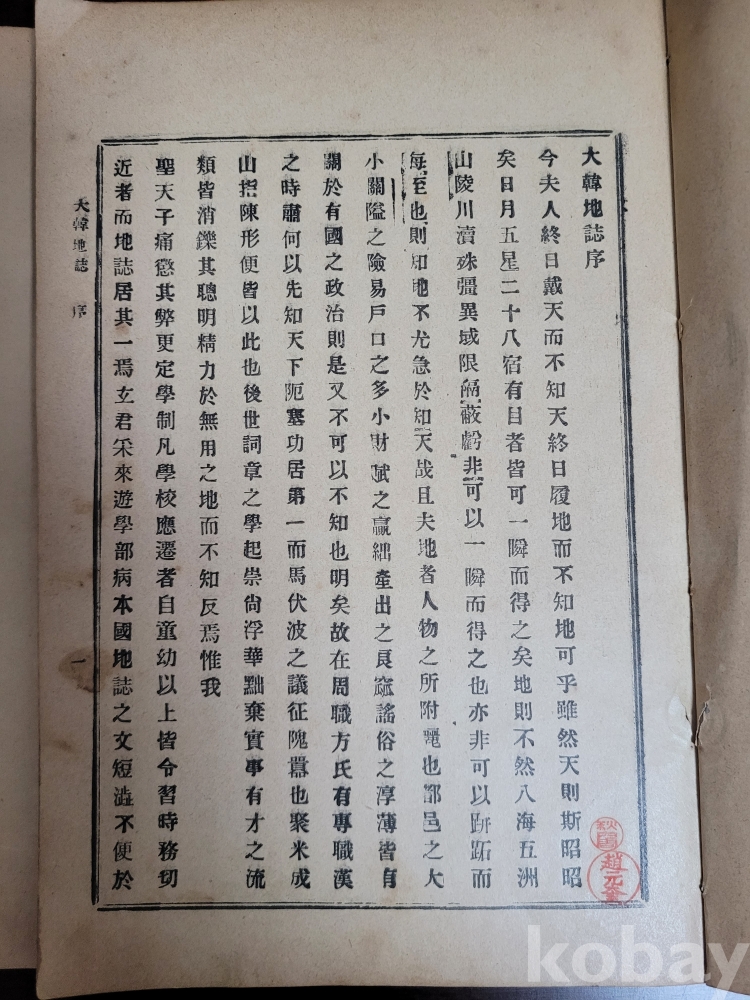 大韓地誌序
今夫人終日戴天而不知天終日履地而不知地可乎雖然天則斯昭昭
矣日月五星二十八宿有目者皆可一瞬而得之矣地則不然八海五洲
山陵川瀆殊彊異域限隔蔽虧非可以一瞬而得之也亦非可以跰跖而
每至也則知地不尤急於知天哉且夫地者人物之所附麗也都邑之大
小關隘之險易戶口之多小財賦之贏絀產出之良窳謠俗之淳薄皆有
關於有國之政治則是又不可以不知也明矣故在周職方氏有專職漢
之時蕭何以先知天下阨塞功居第一而馬伏波之議征隗囂也聚米成
山指陳形便皆以此也後世詞章之學起崇尙浮華黜棄實事有才之流
類皆消鑠其聰明精力於無用之地而不知反焉惟我
聖天子痛懲其弊更定學制凡學校應遷者自童幼以上皆令習時務切
近者而地誌居其一焉玄君采來遊學部病本國地誌之文短澁不便於
大韓地誌 序 一
趙元
kobay